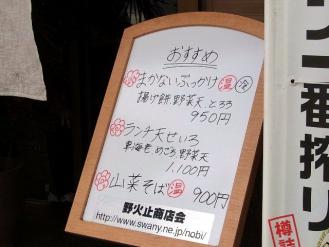 おすすめ
まかないぶっかけ 温 冷
揚げ餅、野菜天、とろろ
950円
ランチ天せいろ
車海老、めごち、野菜天
1,100円
山菜そば 温 900円
野火止商店会
http://www.swany.ne.jp/nobi/
一番搾り
樽詰